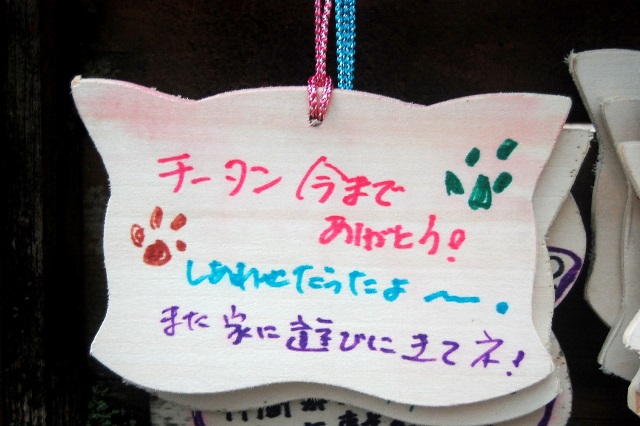 チータン 今まで
ありがとう!
しあわせだったよ〜.
また家に遊びにきてネ!